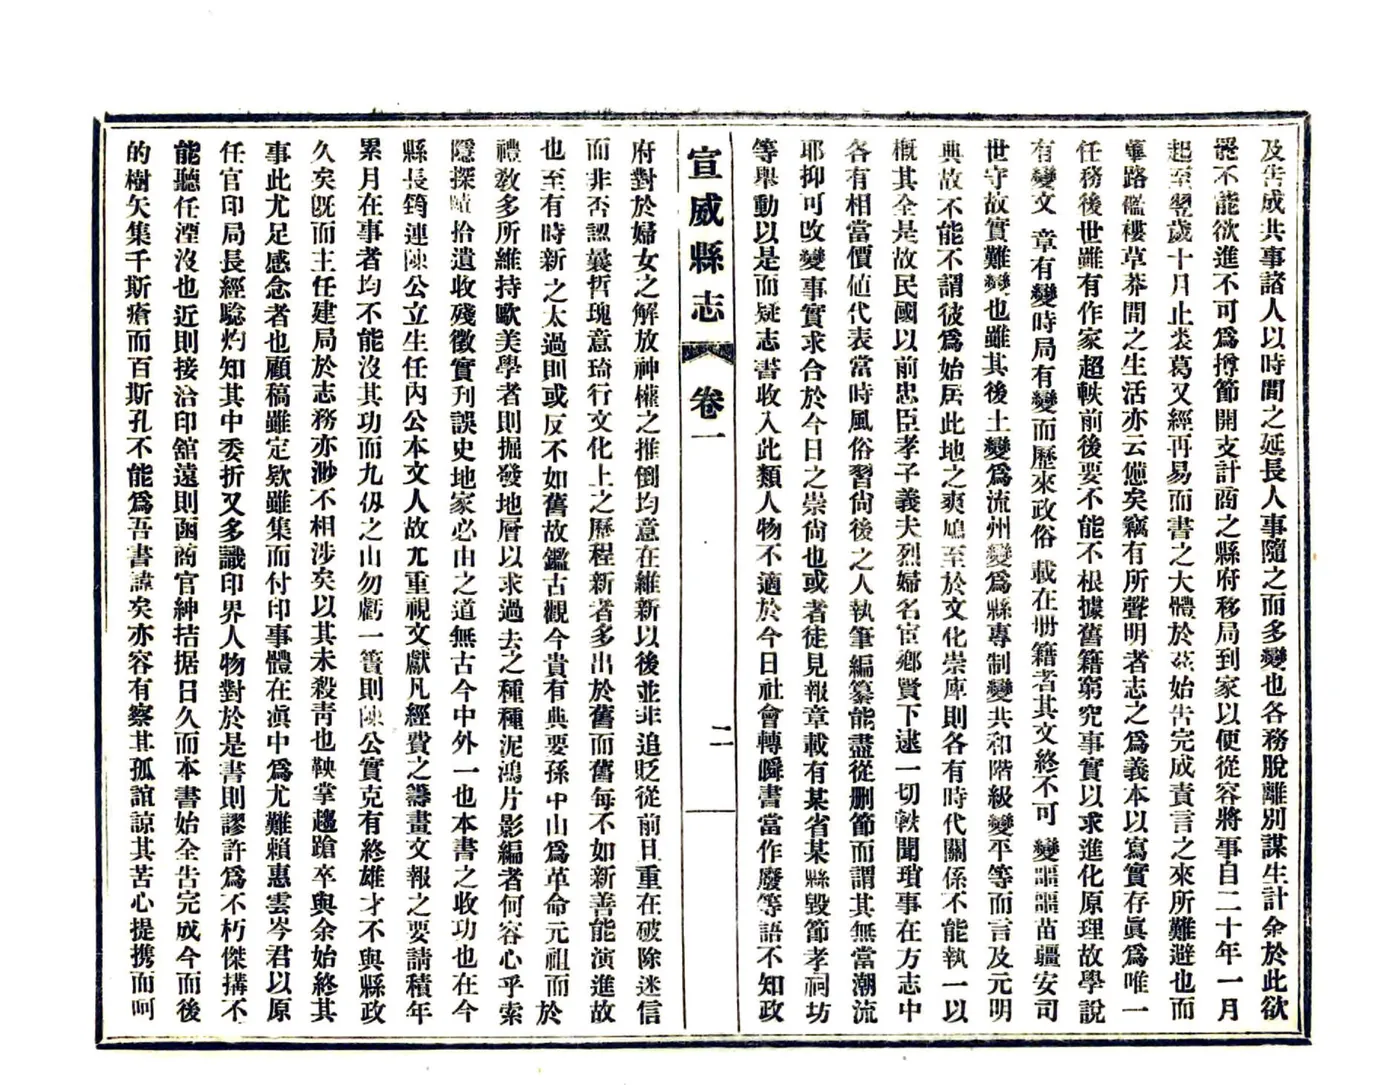 及告成共事諸人以時間之延長人事隨之而多變也各務脫離別謀生計余於此欲
罷不能欲進不可爲撙節開支計商之縣府移局到家以便從容將事自二十年一月
起至翌歲十月止裘葛又經再易而書之大體於茲始告完成責言之來所難避也而
蓽路襤褸草莽間之生活亦云憊矣竊有所聲明者志之爲義本以寫實存眞爲唯一
任務後世雖有作家超軼前後要不能不根據舊籍窮究事實以求進化原理故學說
有變文章有變時局有變而歷來政俗載在册籍者其文終不可變謳謳苗疆安司
世守故實難變也雖其後土變爲流州變爲縣專制變共和階級變平等而言及元明
典故不能不謂彼爲始居此地之爽鳩至於文化崇庳則各有時代關係不能執一以
概其全是故民國以前忠臣孝子義夫烈婦名宦鄉賢下逮一切軼聞瑣事在方志中
各有相當價值代表當時風俗習尙後之人執筆編纂能盡從删節而謂其無當潮流
耶抑可改變事實求合於今日之崇尙也或者徒見報章載有某省某縣毀節孝祠坊
等舉動以是而疑志書收入此類人物不適於今日社會轉瞬書當作廢等語不知政
宣威縣志 卷一
二
府對於婦女之解放神權之推倒均意在維新以後並非追貶從前且重在破除迷信
而非否認曩哲瑰意琦行文化上之歷程新者多出於舊而舊每不如新善能演進故
也至有時新之太過則或反不如舊故鑑古觀今貴有典要孫中山爲革命元祖而於
禮敎多所維持歐美學者則掘發地層以求過去之種種泥鴻片影編者何容心乎索
隱探賾拾遺收殘徵實刊誤史地家必由之道無古今中外一也本書之收功也在今
縣長筠連陳公立生任內公本文人故尤重視文獻凡經費之籌畫文報之要請積年
累月在事者均不能沒其功而九仭之山勿虧一簣則陳公實克有終雄才不與縣政
久矣旣而主任建局於志務亦渺不相涉矣以其未殺靑也鞅掌趨蹌卒與余始終其
事此尤足感念者也顧稿雖定欵雖集而付印事體在滇中爲尤難賴惠雲岑君以原
任官印局長經驗灼知其中委折又多識印界人物對於是書則謬許爲不朽傑搆不
能聽任湮沒也近則接洽印舘遠則函商官紳拮据日久而本書始全告完成今而後
的樹矢集千斯瘡而百斯孔不能爲吾書諱矣亦容有察其孤誼諒其苦心提携而呵